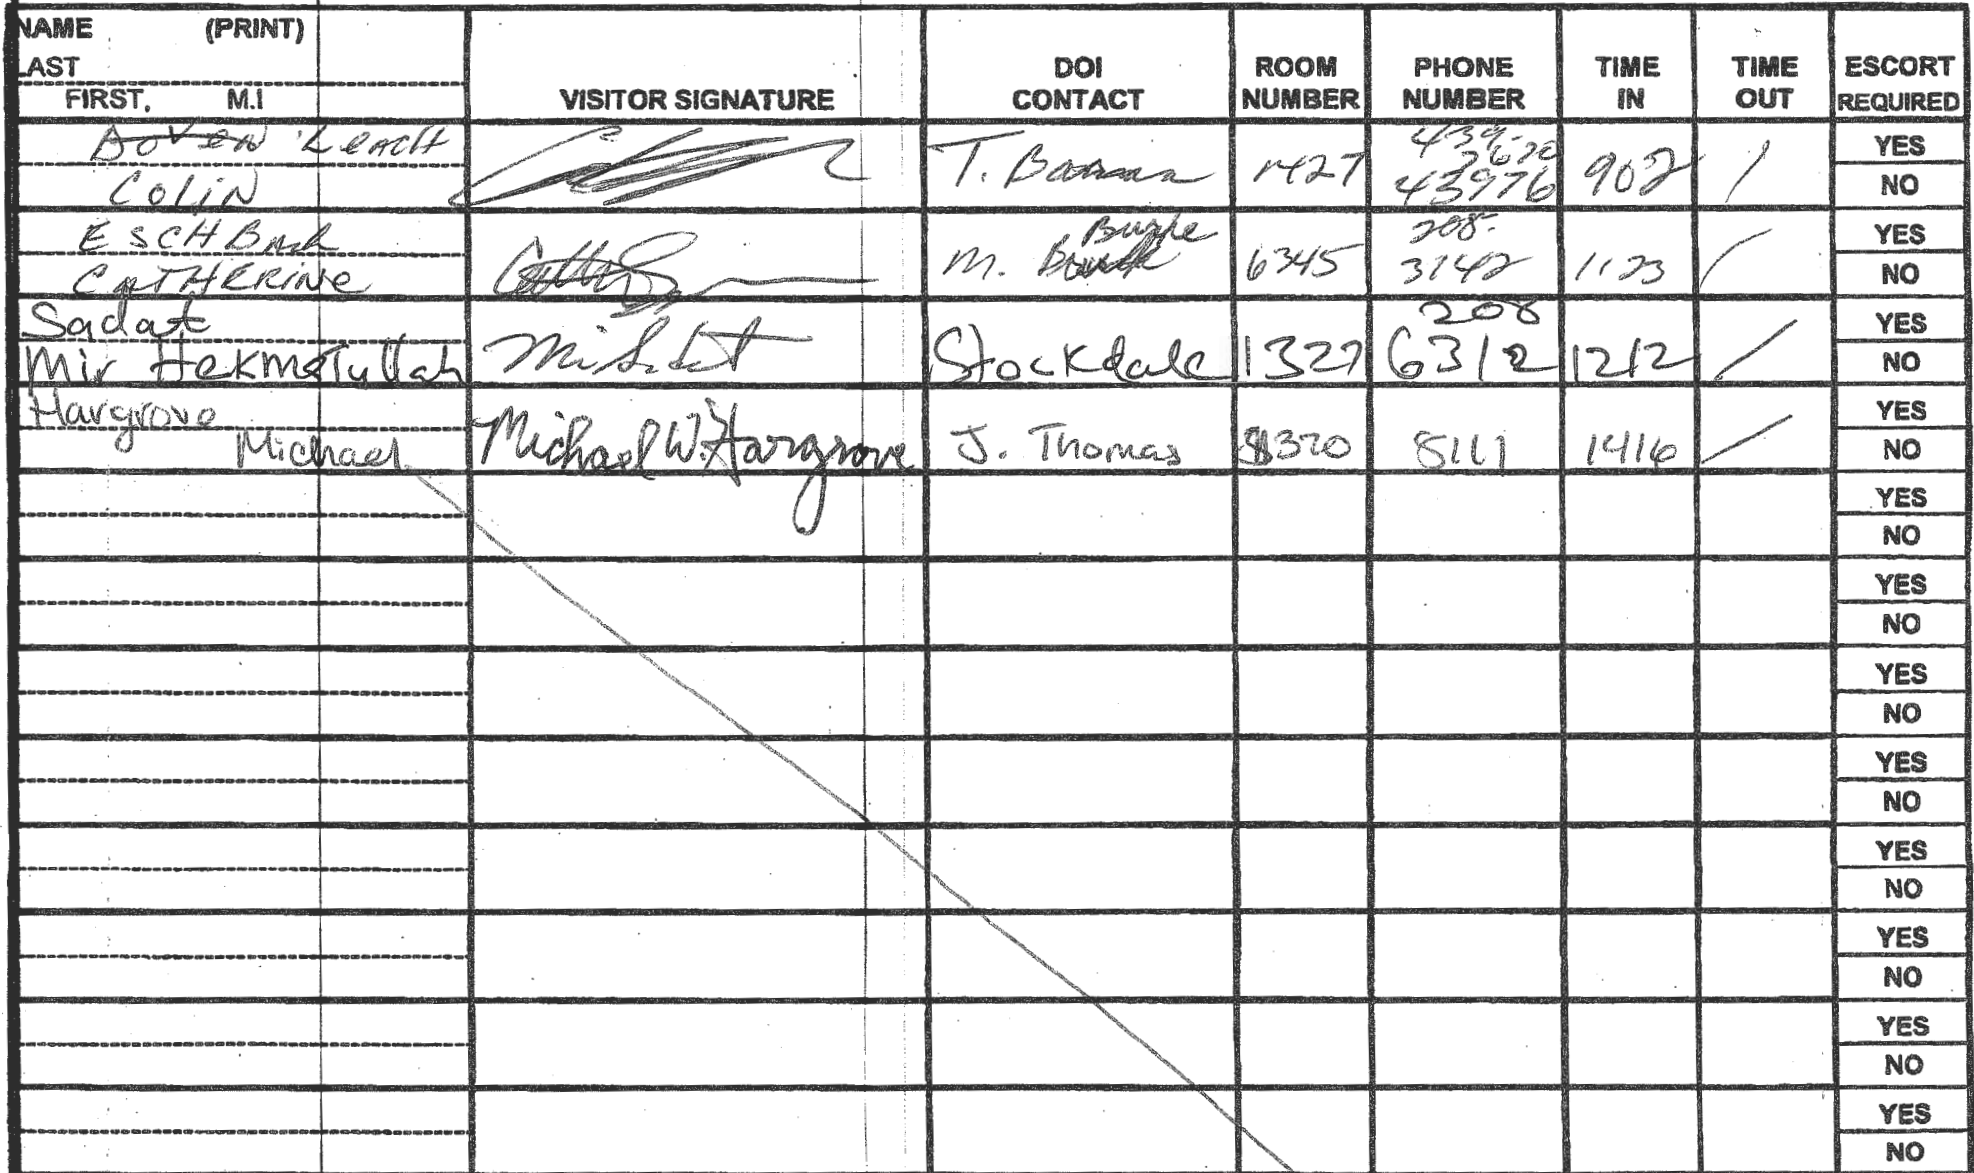 NAME (PRINT)
LAST
FIRST, M.I
VISITOR SIGNATURE
DOI
CONTACT
ROOM
NUMBER
PHONE
NUMBER
TIME
IN
TIME
OUT
ESCORT
REQUIRED
Leach
Colin
T.
1427
439-
43976
902
YES
NO
ESCHBach
CATHERINE
Burke
M.
6345
208-
3142
1123
YES
NO
Sadat
Mir Hekmatullah
Stockdale
1327
208
6312
1212
YES
NO
Hargrove
Michael
Michael W. Hargrove
J. Thomas
1320
8111
1416
YES
NO
YES
NO
YES
NO
YES
NO
YES
NO
YES
NO
YES
NO
YES
NO
YES
NO